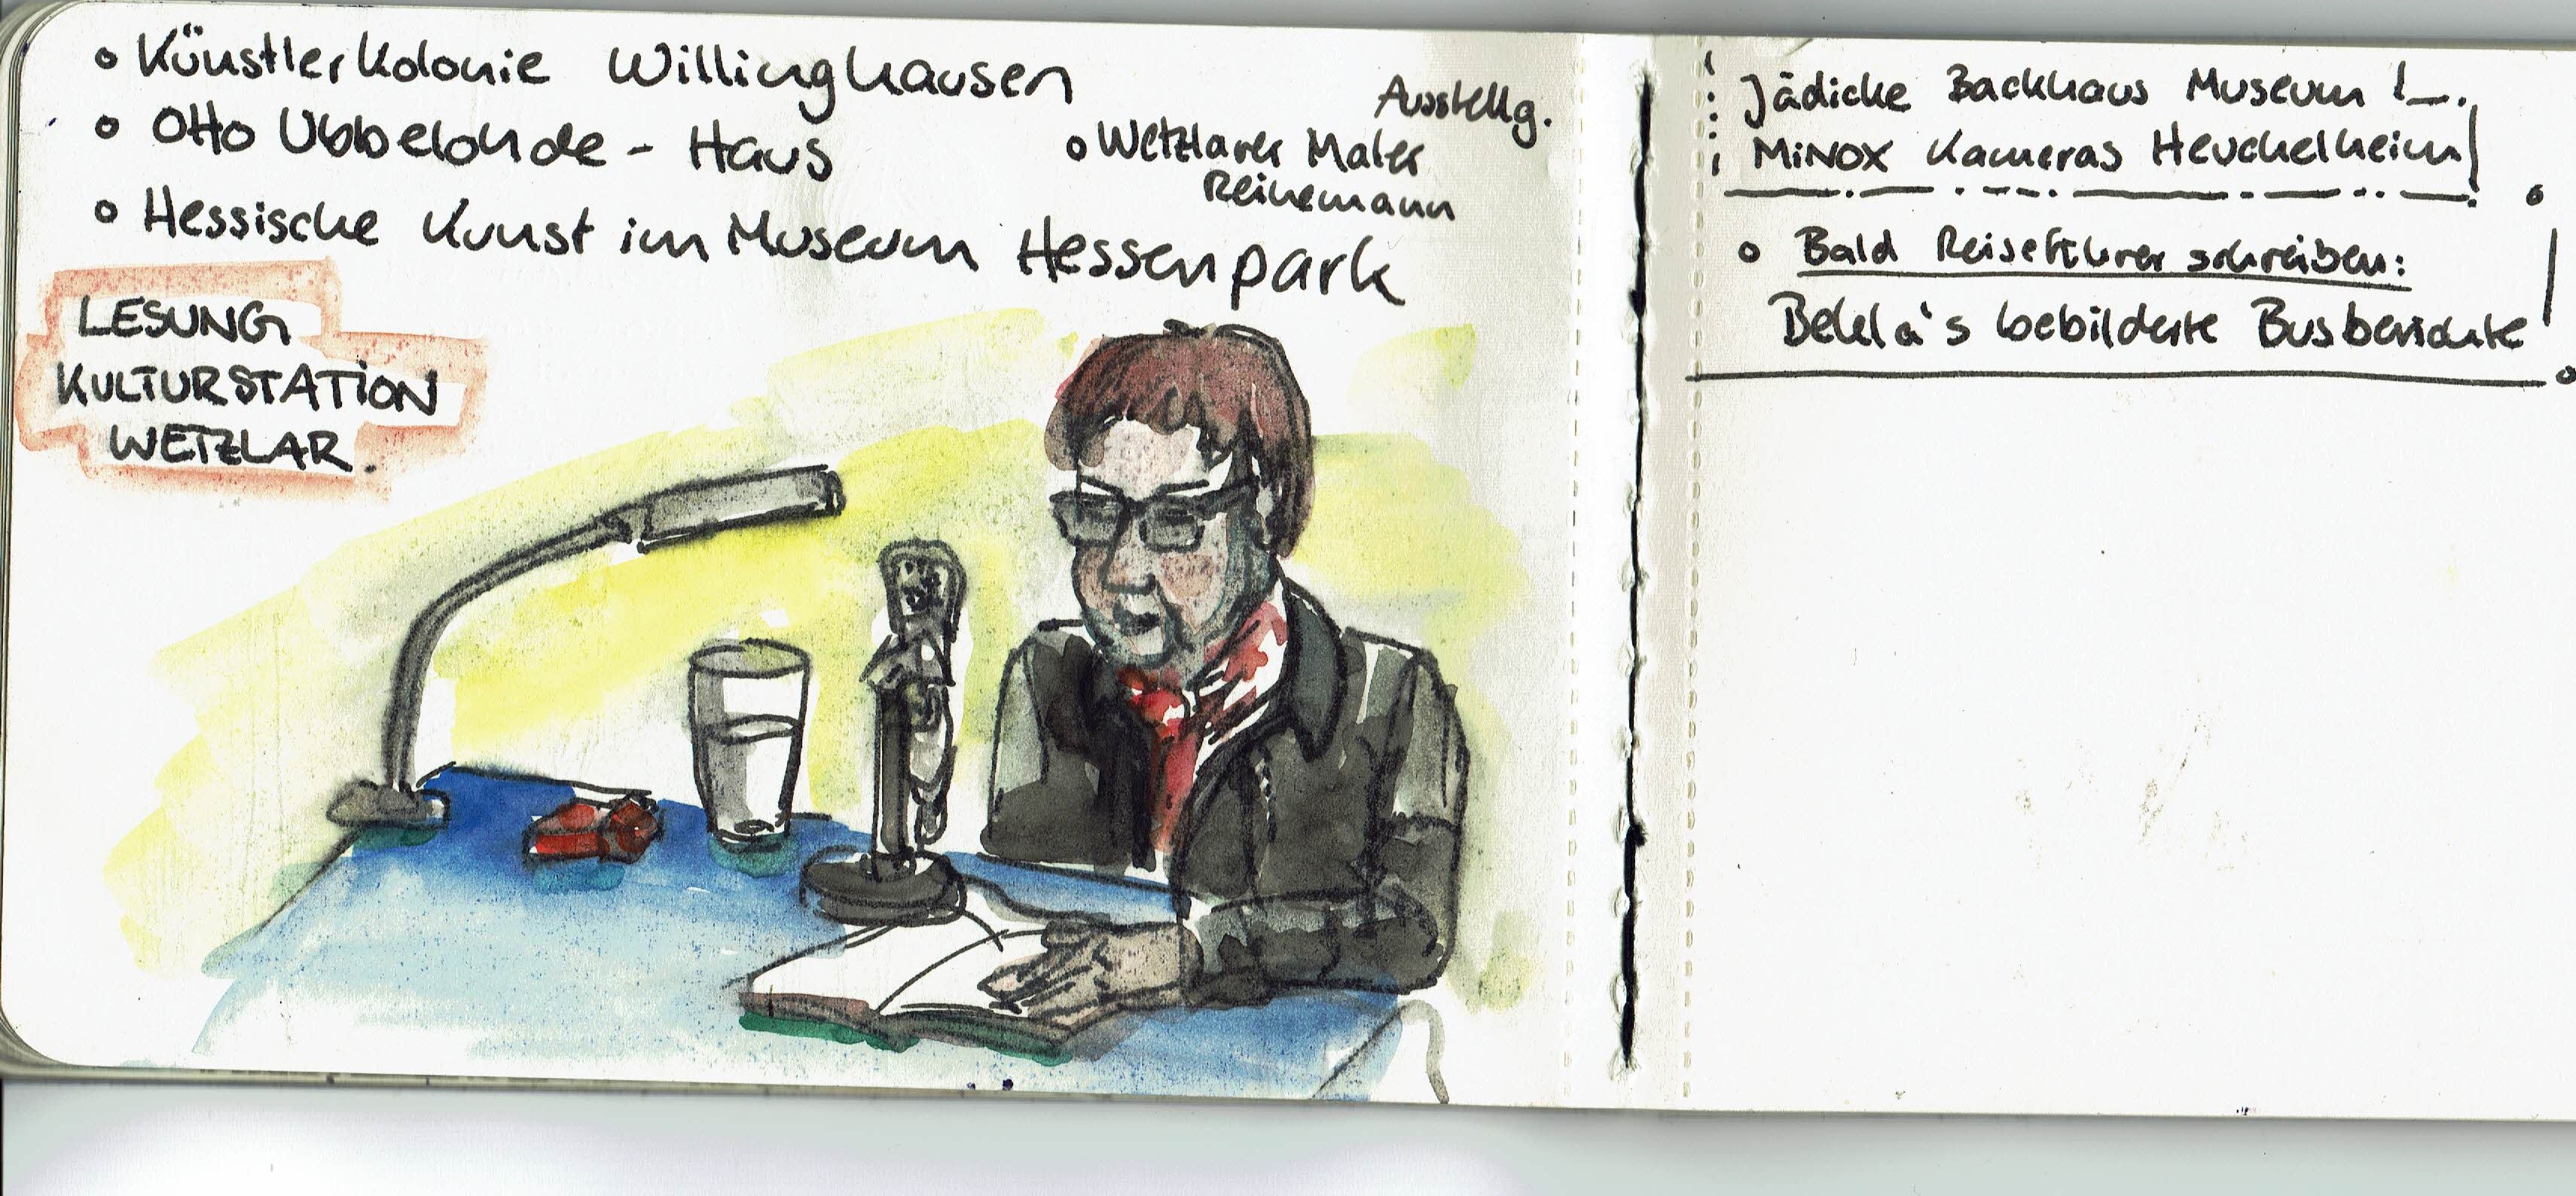 • Künstlerkolonie Willinghausen
• Otto Ubbelohde - Haus
Ausstellg.
• Wetzlarer Maler
Reinemann
• Hessische Kunst im Museum Hessenpark
LESUNG
KULTURSTATION
WETZLAR.
Jädicke Backhaus Museum !
MiNOX Kameras Heuchelheim
• Bald Reiseführer schreiben:
bebilderte Busberichte